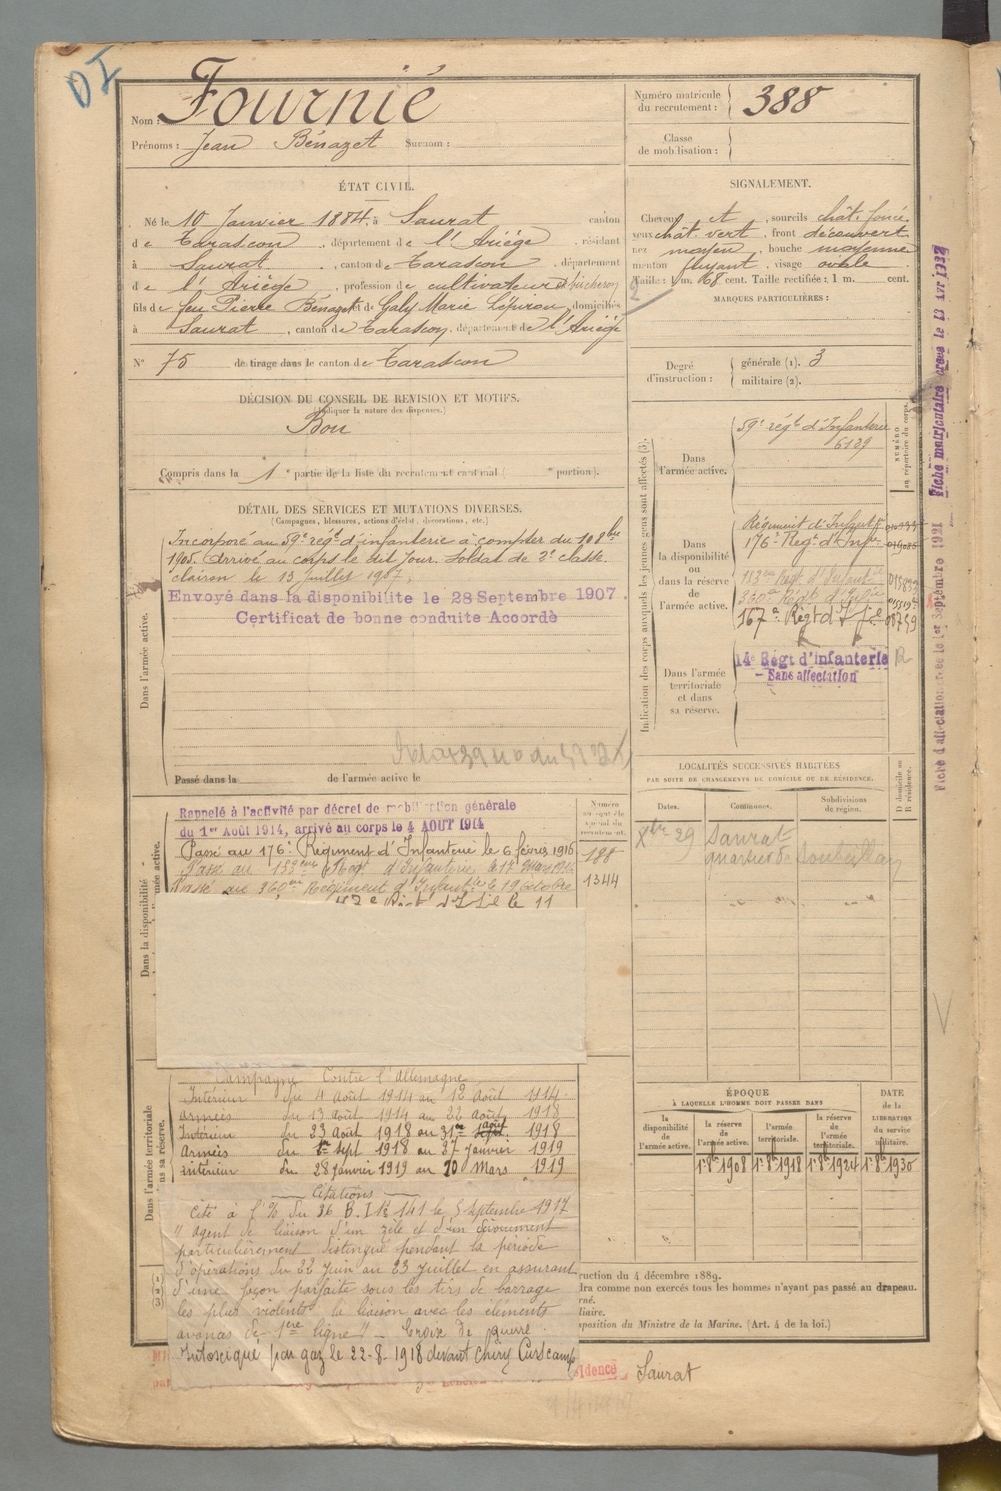 DI
Nom : Fournié
Prénoms : Jean Bénazet Surnom :
Numéro matricule du recrutement : 388
Classe de mobilisation :
ÉTAT CIVIL.
Né le 10 Janvier 1884, à Saurat canton
de Tarascon, département de l'Ariège, résidant
à Saurat, canton de Tarascon département
de l'Ariège, profession de cultivateur bûcheron
fils de feu Pierre Bénazet et de Galy Marie domiciliés
à Saurat, canton de Tarascon, département de l'Ariège
N° 75 de tirage dans le canton de Tarascon
SIGNALEMENT.
Cheveux , sourcils chât. foncé
yeux chât. vert, front découvert
nez moyen, bouche moyenne
menton fuyant, visage ovale
Taille : 1 m. 68 cent. Taille rectifiée : 1 m. cent.
MARQUES PARTICULIÈRES :
2
Degré d'instruction :
générale (1). 3
militaire (2).
DÉCISION DU CONSEIL DE REVISION ET MOTIFS.
(Indiquer la nature des dispenses.)
Bon
Compris dans la 1e partie de la liste du recrutement cantonal ( e portion).
DÉTAIL DES SERVICES ET MUTATIONS DIVERSES.
(Campagnes, blessures, actions d'éclat, décorations, etc.)
Dans l'armée active.
Incorporé au 59e régt d'infanterie à compter du 10 8bre
1905. Arrivé au corps le dit jour, soldat de 2e classe.
clairon le 13 juillet 1907.
Envoyé dans la disponibilité le 28 Septembre 1907.
Certificat de bonne conduite Accordé
Passé dans la de l'armée active le
Indication des corps auxquels les jeunes gens sont affectés (3).
NUMÉRO au répertoire du corps.
Dans l'armée active.
59e régt d'Infanterie
6139
Dans la disponibilité ou dans la réserve de l'armée active.
Régiment d'Infantie
176e Régt d'Infie
153me Régt d'Infantie
360e Régt d'Infie
167e Régt d'Infie
Dans l'armée territoriale et dans sa réserve.
14e Régt d'Infanterie
- Sans affectation
R
Fiche d'affectation créée le 1er Septembre 1921
Fiche matriculaire créée le 13 Avr 1932
LOCALITÉS SUCCESSIVES HABITÉES
PAR SUITE DE CHANGEMENTS DE DOMICILE OU DE RÉSIDENCE.
Dates. Communes. Subdivisions de région. D domicile ou R résidence.
Xbre 29 Saurat
quartier de
Dans la disponibilité
Rappelé à l'activité par décret de mobilisation générale
du 1er Août 1914, arrivé au corps le 4 AOUT 1914
Passé au 176e Régiment d'Infanterie le 6 février 1916
Passé au 153eme Régt d'Infanterie le 17 mars 1916
Passé au 360eme Régiment d'Infantie le 19 Octobre
Régt d'Infie le 11
188
1344
Dans l'armée territoriale
Campagne Contre l'Allemagne
Intérieur du 4 Août 1914 au 12 Août 1914.
Armées du 13 Août 1914 au 22 Août 1918
Intérieur du 23 Août 1918 au 31 août 1918
Armées du 1er Sept 1918 au 27 Janvier 1919
Intérieur du 28 janvier 1919 au 20 Mars 1919
Citations
Cité à l'o/ du 36 B.I. N° 141 le 5 Septembre 1917
" agent de liaison d'un zèle et d'un dévouement
particulièrement distingué pendant la période
d'opérations du 22 Juin au 23 Juillet en assurant
d'une façon parfaite sous les tirs de barrage
les plus violents la liaison avec les éléments
avancés de 1ère ligne" - Croix de guerre
Intoxiqué par gaz le 22-8-1918 devant Chiry Ourscamp
ÉPOQUE
À LAQUELLE L'HOMME DOIT PASSER DANS
la disponibilité de l'armée active. la réserve de l'armée active. l'armée territoriale. la réserve de l'armée territoriale. DATE de la LIBÉRATION du service militaire.
1er 8bre 1908 1er 8bre 1918 1er 8bre 1924 1er 8bre 1930
ruction du 4 décembre 1889.
dra comme non exercés tous les hommes n'ayant pas passé au drapeau.
rné.
liaire.
position du Ministre de la Marine. (Art. 4 de la loi.)
sidence Saurat